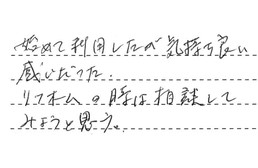 始めて利用したが気持ち良い
感じだった.
リフォームの時は相談して
みようと思う。